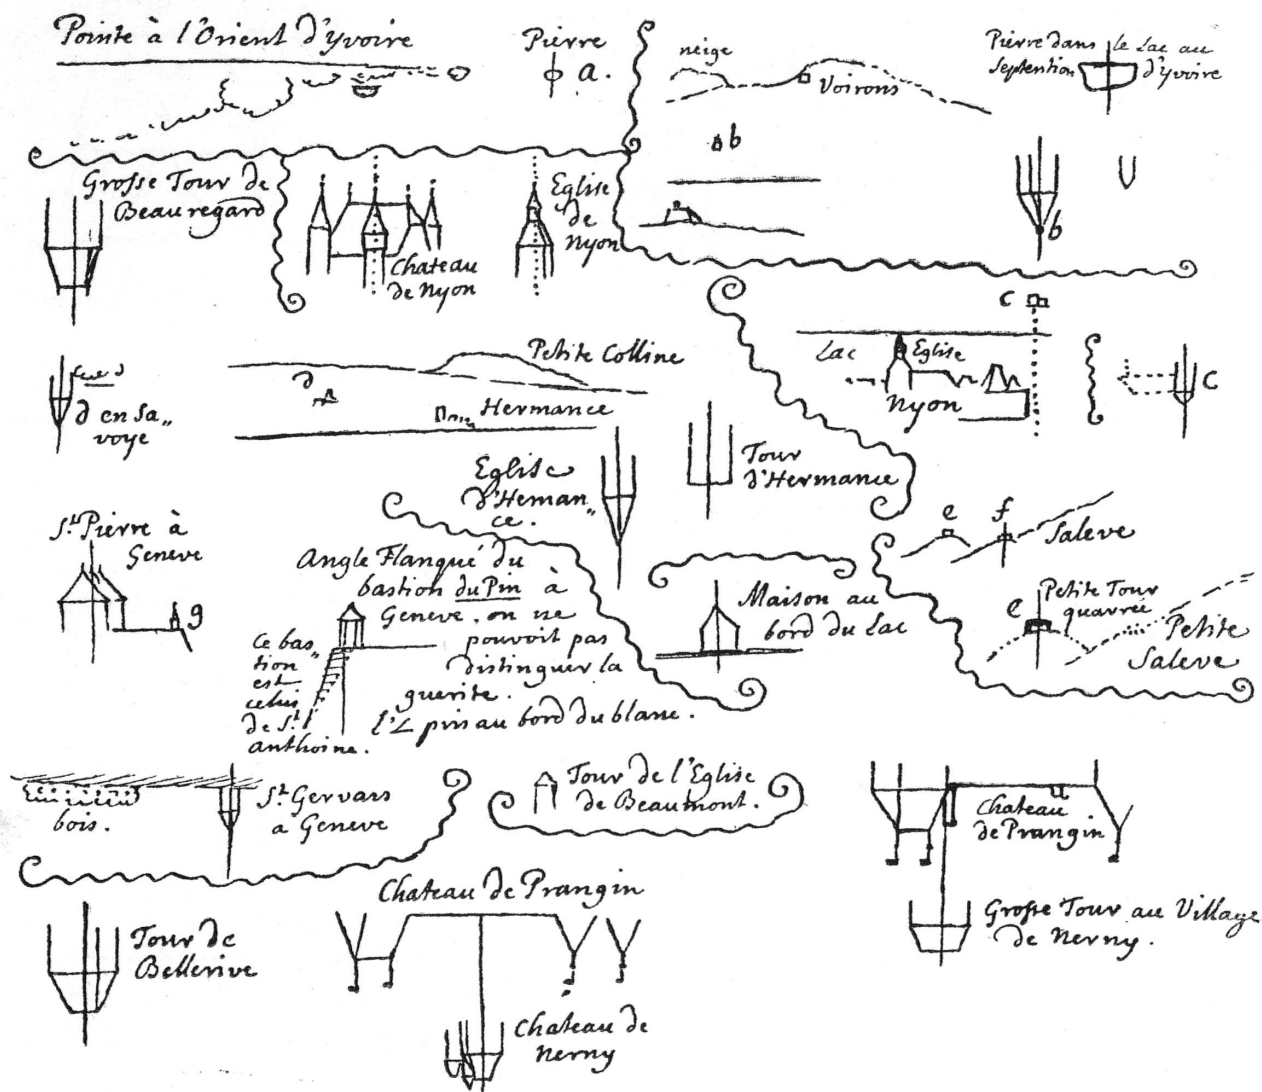 Pointe à l'Orient d'Yvoire
Pierre
a.
neige
Voirons
b
Pierre dans le Lac au
Septention d'Yvoire
b
Grosse Tour de
Beauregard
Chateau
de Nyon
Eglise
de
Nyon
c
Lac
Eglise
Nyon
C
d en Sa„
voye
Petite Colline
d
Hermance
Eglise
d'Heman„
ce.
Tour
d'Hermance
St Pierre à
Geneve
g
Angle Flanqué du
bastion du Pin à
Geneve. on ne
pouvoit pas
distinguer la
guerite.
l'∠ pris au bord du blanc.
Ce bas„
tion
est
celui
de St
anthoine.
Maison au
bord du Lac
e
f
Saleve
e
Petite Tour
quarrée
Petite
Saleve
bois.
St Gervais
a Geneve
Tour de l'Eglise
de Beaumont.
Chateau
de Prangin
Grosse Tour au Village
de Nerny.
Tour de
Bellerive
Chateau de Prangin
Chateau de
Nerny